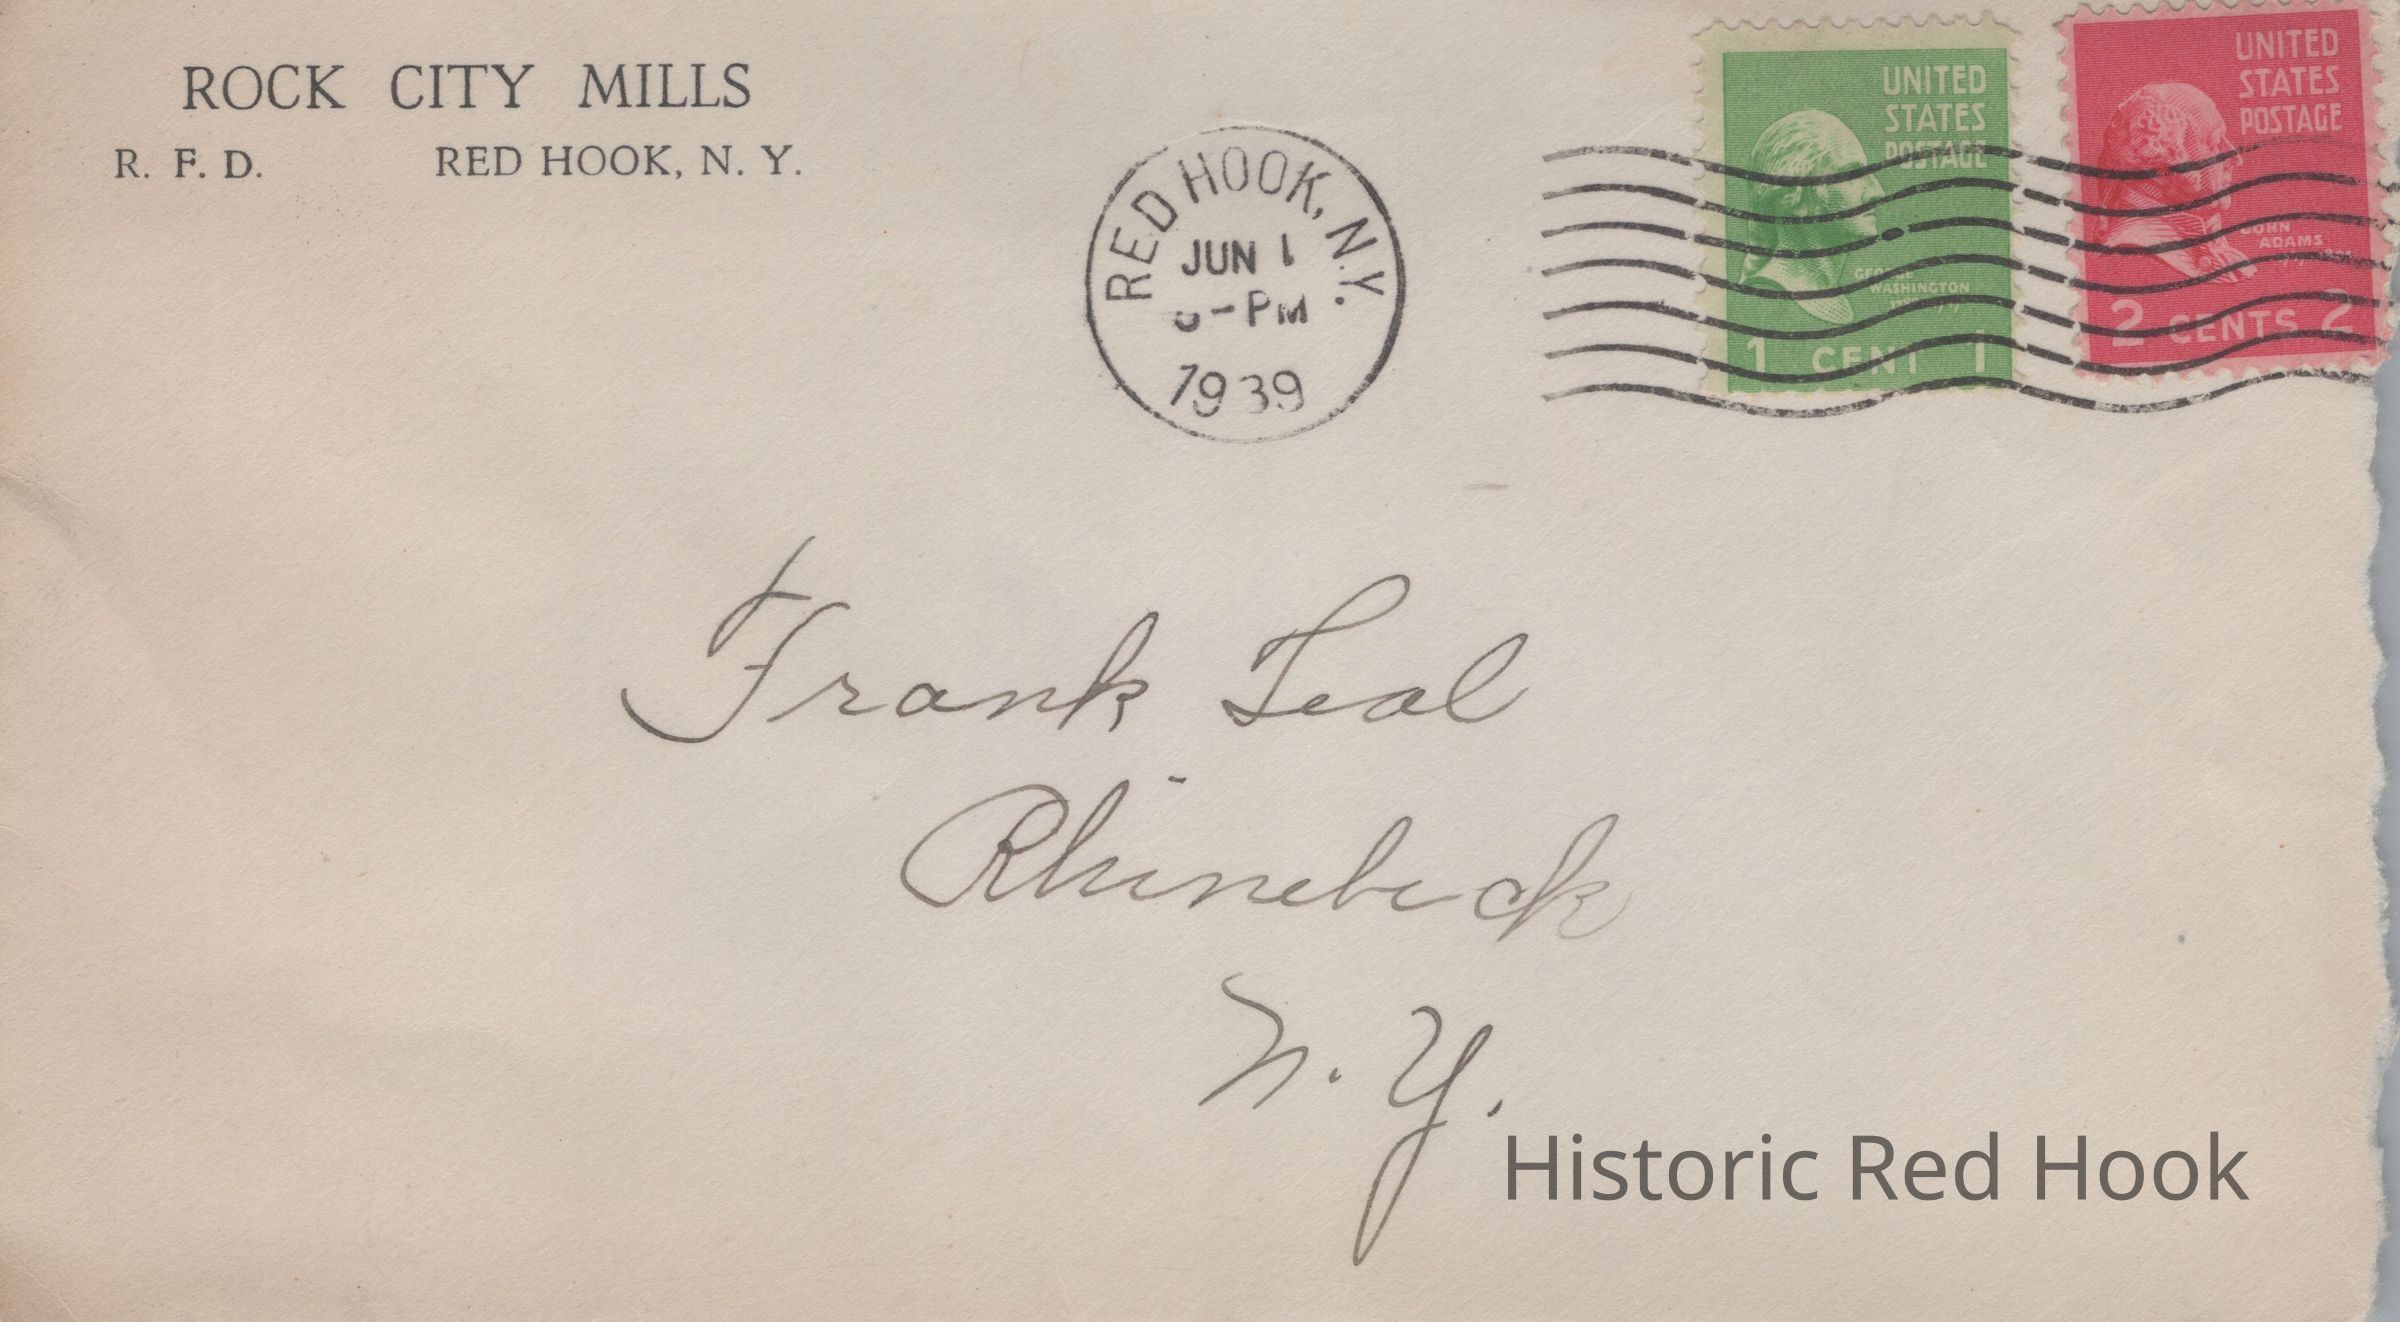 ROCK CITY MILLS
R. F. D. RED HOOK, N. Y.
RED HOOK, N.Y.
JUN 1
PM
1939
UNITED
STATES
POSTAGE
GEORGE
WASHINGTON
1 CENT 1
UNITED
STATES
POSTAGE
JOHN
ADAMS
2 CENTS 2
Frank Teal
Rhinebeck
N. Y.
Historic Red Hook